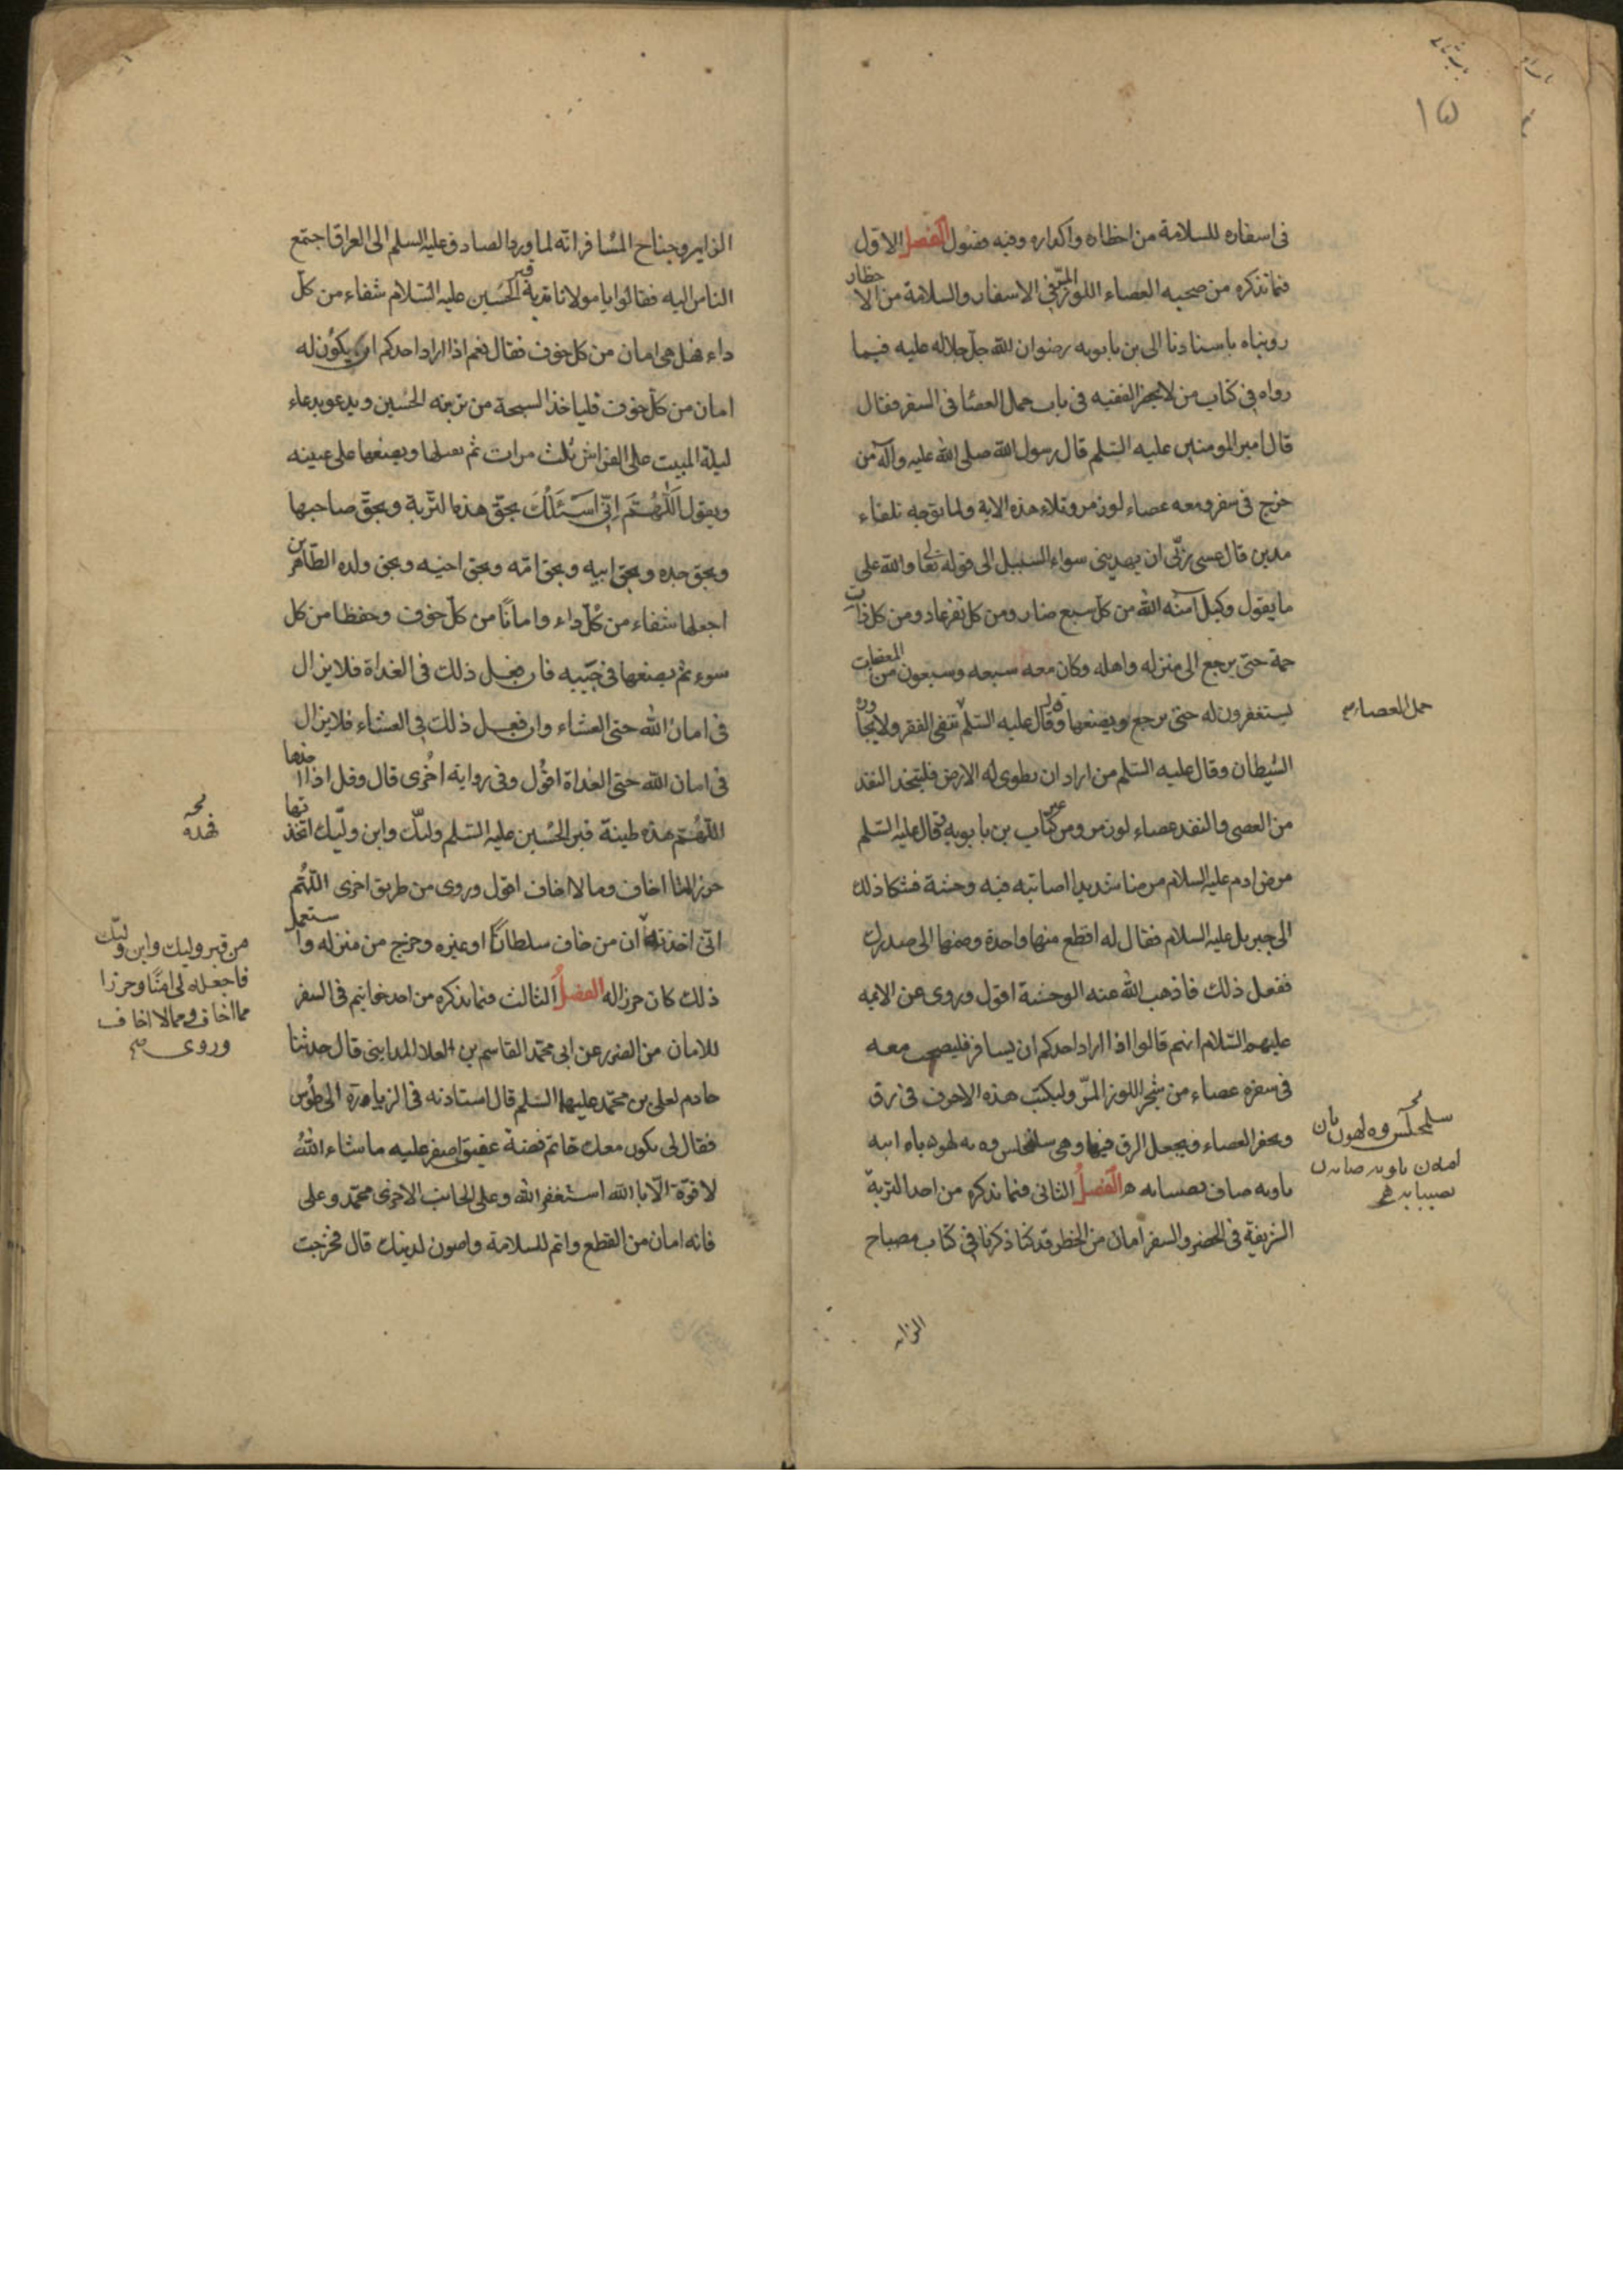 ١٥
فى اسفاره للسلامة من اخطاره واكداره وفيه فصول الفصل الاول
فيما نذكره من صحبه العصاء اللوز المرّ فى الاسفار والسلامة من الاخطار
رويناه باسنادنا الى بن بابويه رضوان الله جل جلاله عليه فيما
رواه فى كتاب من لا يحضر الفقيه فى باب حمل العصا فى السفر فقال
قال امير المومنين عليه السّلم قال رسول الله صلى الله عليه وآله من
خرج فى سفر ومعه عصاء لوز مر وتلاء هذه الاية ولما توجه تلقاء
مدين قال عسى ربّى ان يهدينى سواء السبيل الى قوله تعالى والله على
ما يقول وكيل آمنه الله من كل سبع ضار ومن كل لص عاد ومن كل ذات
حمة حتى يرجع الى منزله واهله وكان معه سبعه وسبعون من المعقبات
يستغفرون له حتى يرجع ويضعها وقال عليه السّلم تنفى الفقر ولا يجاوره
حمل العصا
الشيطان وقال عليه السّلم من اراد ان يطوى له الارض فليتخذ النقد
من العصى والنقد عصاء لوز مر ومن غير كتاب بن بابويه قال عليه السّلم
مرض ادم عليه السلام مرضا شديدا اصابته فيه وحشة فشكا ذلك
الى جبريل عليه السلام فقال له اقطع منها واحدة وضمها الى صدرك
ففعل ذلك فاذهب الله عنه الوحشة اقول وروى عن الايمه
عليهم السّلام انهم قالوا اذا اراد احدكم ان يسافر فليصحب معه
فى سفره عصاء من شجر اللوز المرّ وليكتب هذه الاحرف فى رق
ويحفر العصاء ويجعل الرق فيها وهى سلمحلس وه به لهوه باه ابىه
باوبه صاف بصسابه هـ الفصل الثانى فيما نذكره من اخذ التربة
الشريفة فى الحضر والسفر امان من الخطر قد كنا ذكرنا فى كتاب مصباح
الزاير
الزاير وجناح المسافر انّه لما ورد الصادق عليه السلم الى العراق اجتمع
الناس اليه فقالوا يا مولانا تربة قبر الحسين عليه السّلام شفاء من كل
داء فهل هى امان من كل خوف فقال نعم اذا اراد احدكم ان يكون له
امان من كل خوف فلياخذ السبحة من تربته الحسين ويدعو بدعاء
ليلة المبيت على الفراش ثلث مرات ثم يقبلها ويضعها على عينه
ويقول اَللّٰهُمَّ اِنّى اَسْئَلُكَ بحقّ هذه التّربة وبحقّ صاحبها
وبحق جده وبحق ابيه وبحق امّه وبحق اخيه وبحق ولده الطّاهرين
اجعلها شفاء من كلّ داء واماناً من كلّ خوف وحفظا من كل
سوء ثم يضعها فى جيبه فان فعل ذلك فى الغداة فلا يزال
فى امان الله حتى العشاء وان فعل ذلك فى العشاء فلا يزال
فى امان الله حتى الغداة اقول وفى رواية اخرى قال وقل اذا اخذها
اللّهمّ هذه طينة قبر الحسين عليه السّلم وليّك وابن وليّك اتخذتها
حرزا لما اخاف وما لا اخاف اقول وروى من طريق اخرى اللّهم
انى اخذته ان من خاف سلطاناً او غيره وخرج من منزله واستعمل
من قبر وليك وابن وليّك
فاجعله لى امنًا وحرزا
مما اخاف ومما لا اخاف
وروى
ذلك كان حرزا له الفصل الثالث فيما نذكره من اخذ خواتيم فى السفر
للامان من الضرر عن ابى محمّد القاسم بن العلا المداينى قال حدثنا
خادم لعلى بن محمّد عليهما السّلم قال استاذنه فى الزيارة الى طوس
فقال لى يكون معك خاتم فصّه عقيق اصفر عليه ما شاء اللهُ
لا قوّة الّا بالله استغفر الله وعلى الجانب الاخرى محمّد وعلى
فانه امان من القطع واتم للسلامة واصون لدينك قال فخرجت